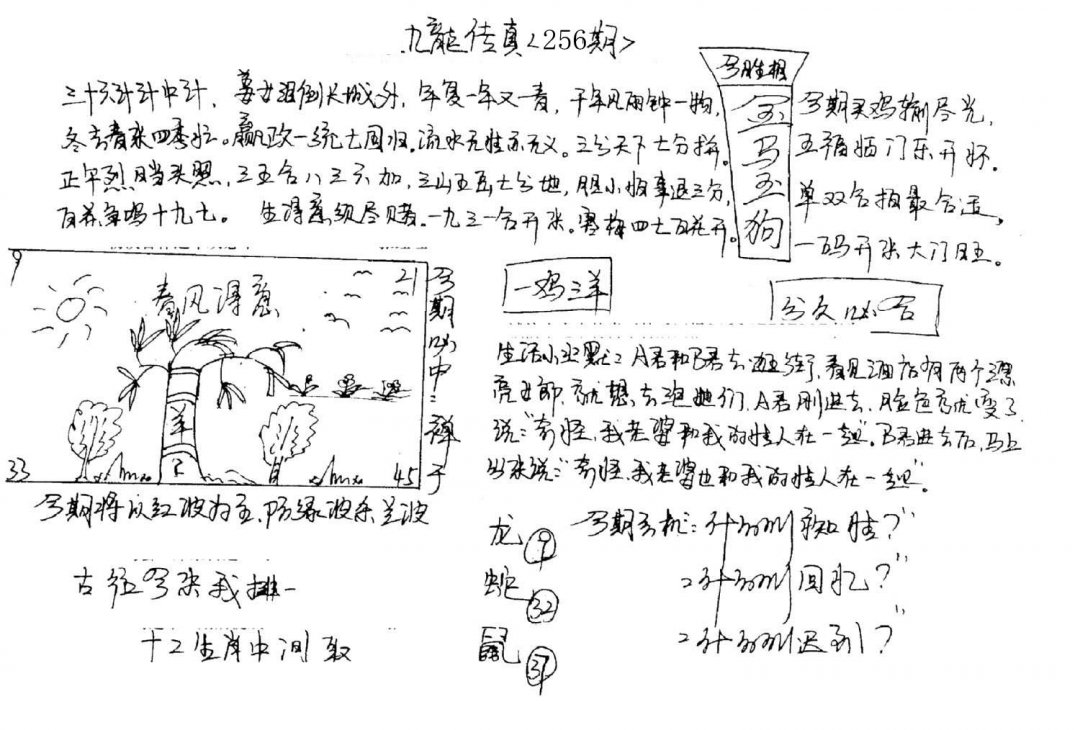 九龍传真<256期>
三十六计计中计，姜女泪倒长城外，年复一年又一青，千年风雨钟一物，
冬去春来四季忙。嬴政一统七国归。流水无性亦无义。三分天下七分拼。
正午烈日当头照，三五合八三六加，三山五岳七分地，胆小怕事退三分，
百花争鸣十九七。 生得意须尽。一九三一合开来。寒梅四七百花开。
今期买鸡输尽光，
五福临门乐开怀。
单双合拍最合适，
一码开来大门旺。
金
马
玉
狗
9
21
春风得意
羊
33
45
今期必中:禅子
一鸡三羊
生活小幽默: A君和B君去逛街，看见酒店有两个漂
亮女郎，就想去泡她们，A君刚进去，脸色就变了
说:"奇怪，我老婆和我的情人在一起"。B君进去后，马上
出来说:"奇怪，我老婆也和我的情人在一起"。
今期将以红波为主，防绿波杀兰波
龙 9
蛇 32
鼠 37
今期玄机: 什么叫
二什么叫回忆?"
二什么叫迟到?"
古经今来我排一
十二生肖中间取